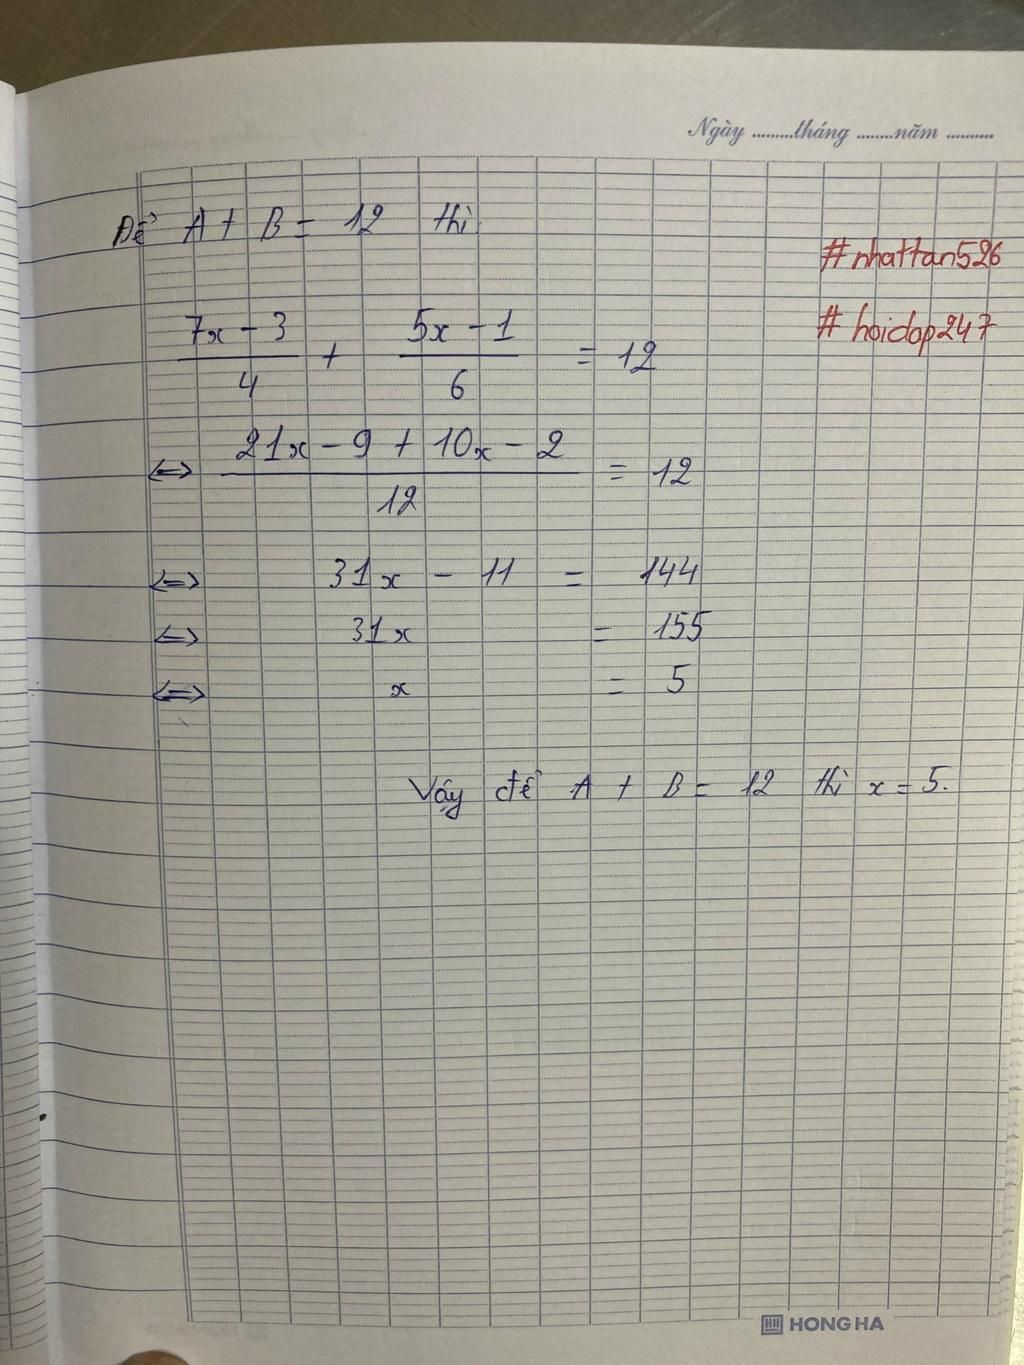 Ngày .........tháng ........năm ..........
Để A + B = 12 thì
#nhattan526
7x - 3 / 4 + 5x - 1 / 6 = 12
#hoidap247
<=> 21x - 9 + 10x - 2 / 12 = 12
<=> 31x - 11 = 144
<=> 31x = 155
<=> x = 5
Vậy để A + B = 12 thì x = 5.
HONG HA